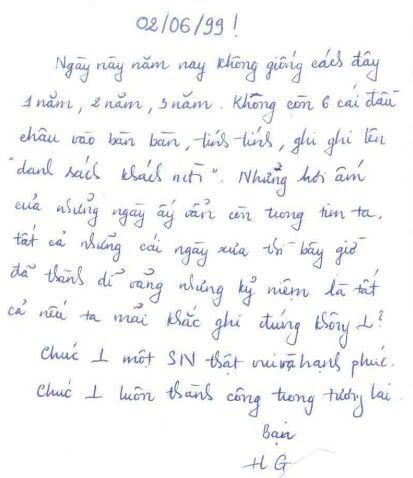 02/06/99!
Ngày này năm nay không giống cách đây
1 năm, 2 năm, 3 năm. Không còn 6 cái đầu
châu vào bàn bàn, tính tính, ghi ghi tên
"danh sách khách mời". Những hơi ấm
của những ngày ấy vẫn còn trong tim ta,
tất cả những cái ngày xưa thì bây giờ
đã thành dĩ vãng nhưng kỷ niệm là tất
cả nếu ta mãi khắc ghi đúng không ⊥?
Chúc ⊥ một SN thật vui và hạnh phúc.
Chúc ⊥ luôn thành công trong tương lai.
Bạn
HG